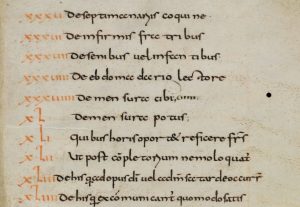 xxxu De septimanariis coquine
xxxui De infirmis fratribus
xxxuii De senibus uel infantibus
xxxuiii De ebdomadario lectore
xxxuiiii De mensura cibi
xL De mensura potus
xLi Quibus horis oport& reficere frs
xLii Ut post cōpletorium nemo loquat
xLiii De his qui ad opus di uel ad mensa tarde occurr
xLiiii De his qui excōmunicant quomodo satis